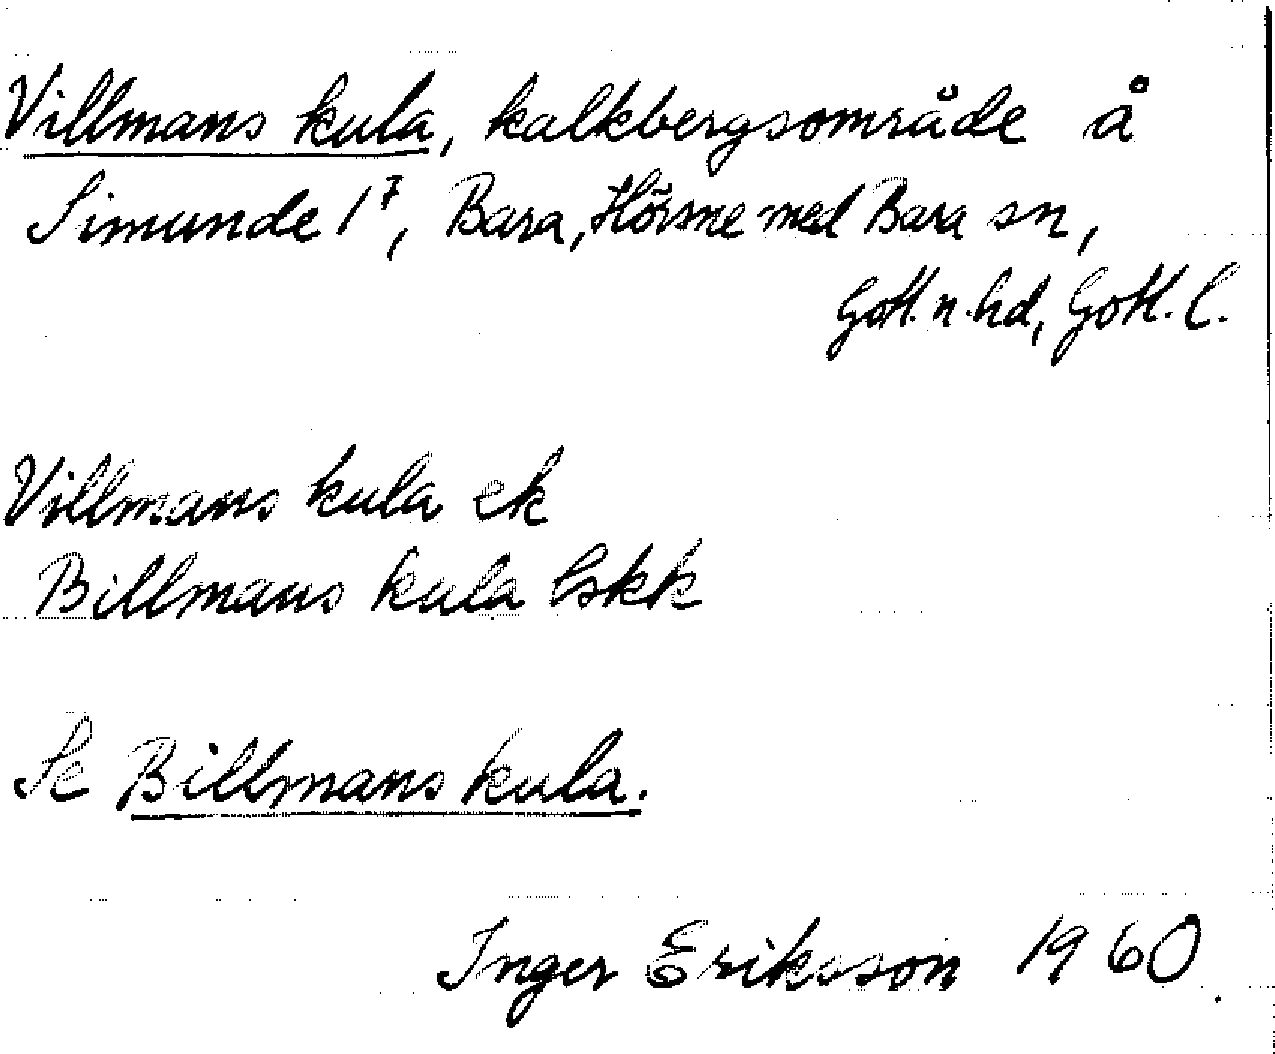 Villmans kula, kalkbergsområde å
Simunde 1⁷, Bara, Hörsne med Bara sn,
Gotl. n. hd, Gotl. l.
Villmans kula ek
Billmans kula lskk
Se Billmans kula.
Inger Eriksson 1960.